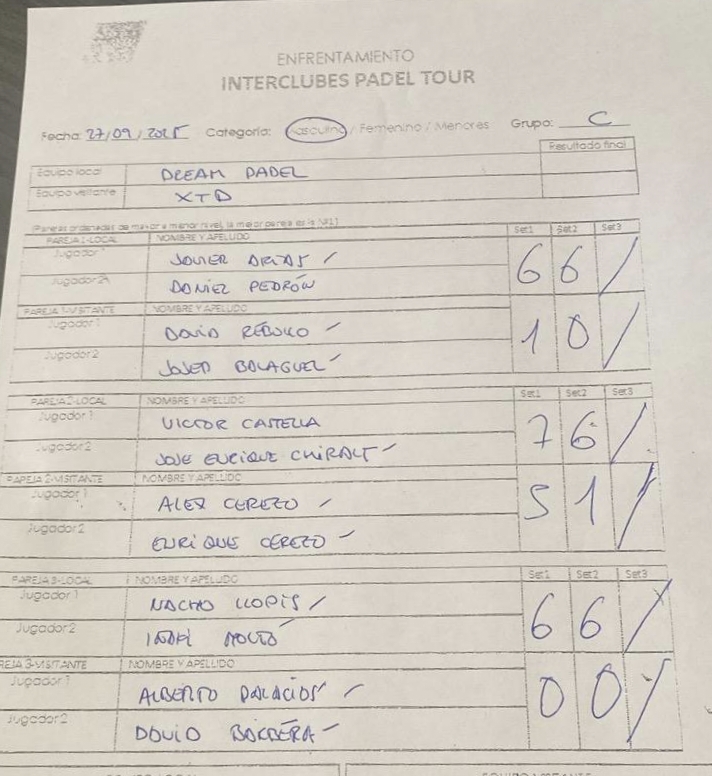 ENFRENTAMIENTO
INTERCLUBES PADEL TOUR
Fecha: 27/09/2025 Categoría: Masculino / Femenino / Menores Grupo: C
Resultado final
Equipo local DREAM PADEL
Equipo visitante XTD
(Parejas ordenadas de mayor a menor nivel, la mejor pareja es la Nº1)
PAREJA 1-LOCAL NOMBRE Y APELLIDO Set1 Set2 Set3
Jugador 1 JAVIER ARIAS / 6 6 /
Jugador 2 DANIEL PEDRÓN
PAREJA 1-VISITANTE NOMBRE Y APELLIDO
Jugador 1 DAVID / 1 0 /
Jugador 2 BALAGUER /
PAREJA 2-LOCAL NOMBRE Y APELLIDO Set1 Set2 Set3
Jugador 1 VICTOR CASTELLA 7 6 /
Jugador 2 JOSE ENRIQUE CHIRALT /
PAREJA 2-VISITANTE NOMBRE Y APELLIDO
Jugador 1 ALEX CEREZO / 5 1 /
Jugador 2 ENRIQUE CEREZO /
PAREJA 3-LOCAL NOMBRE Y APELLIDO Set1 Set2 Set3
Jugador 1 NACHO LLOPIS / 6 6 /
Jugador 2 MOLTÓ
PAREJA 3-VISITANTE NOMBRE Y APELLIDO
Jugador 1 ALBERTO PALACIOS / 0 0 /
Jugador 2 DAVID BARBERA /